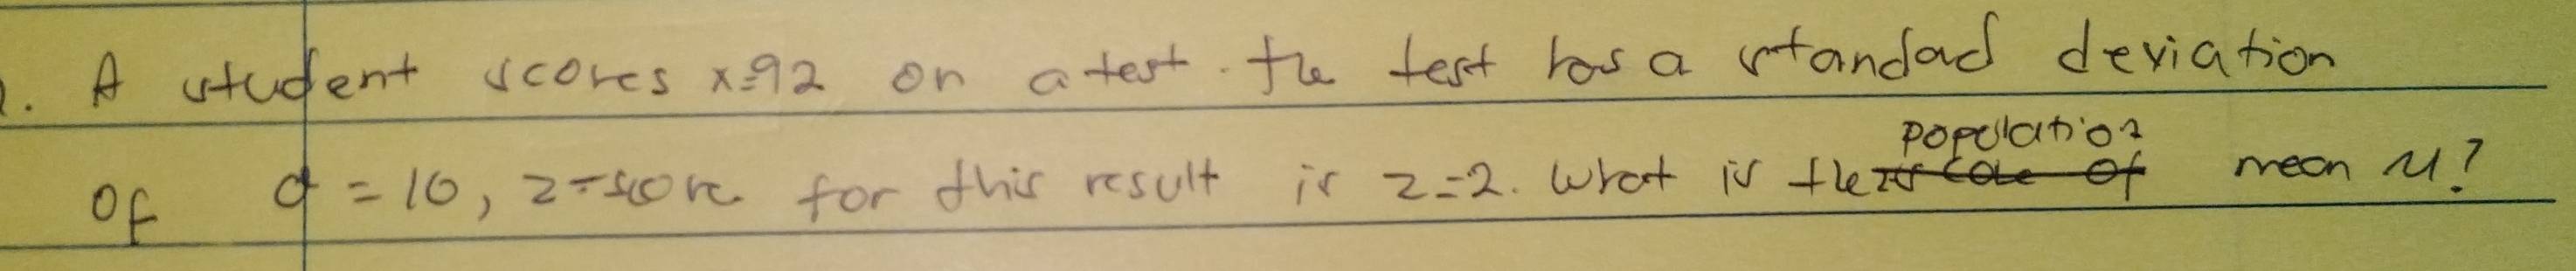 . A student scores x=92 on a test. the test has a standad deviation
population
of σ = 10, z-score for this result is z=2. what is the mean u?